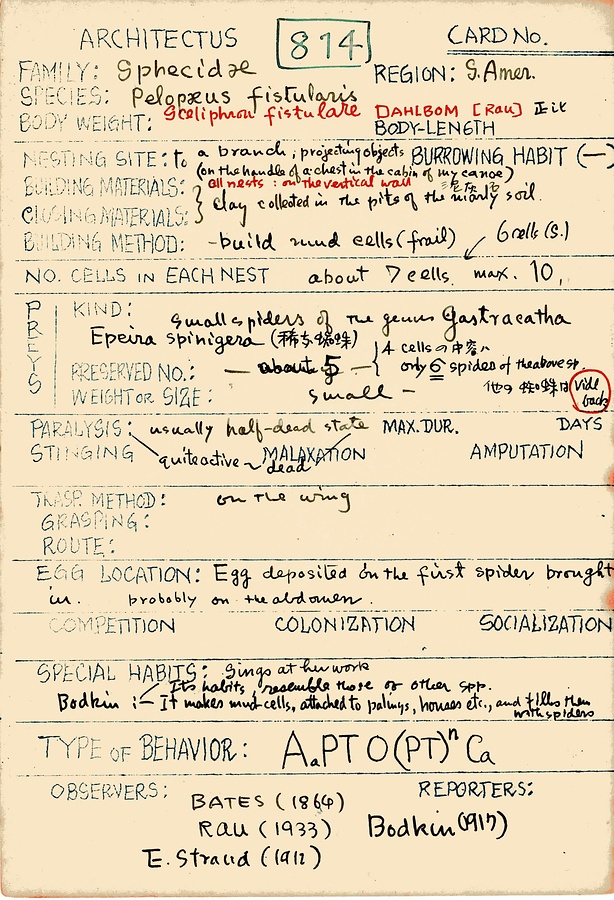 ARCHITECTUS 814 CARD No.
FAMILY: Sphecidæ REGION: S. Amer.
SPECIES: Pelopæus fistularis
Sceliphron fistulare DAHLBOM [Rau]
BODY WEIGHT: BODY-LENGTH
NESTING SITE: to a branch, projecting objects BURROWING HABIT (—)
(on the handle of a chest in the cabin of my canoe)
BUILDING MATERIALS: all nests: on the vertical wall
CLOSING MATERIALS: clay collected in the pits of the marly soil.
BUILDING METHOD: -build mud cells (frail) 6 cells (S.)
NO. CELLS IN EACH NEST about 7 cells, max. 10,
PREYS
KIND: small spiders of the genus Gastracatha
Epeira spinigera (稀に蜘蛛)
4 cells の中
PRESERVED NO.: — about 5 — only 6 spides of the above sp.
WEIGHT OR SIZE: small — 他の蜘蛛は Vide back
PARALYSIS: usually half-dead state MAX. DUR. DAYS
STINGING quite active ~ dead MALAXATION AMPUTATION
TRASP. METHOD: on the wing
GRASPING:
ROUTE:
EGG LOCATION: Egg deposited on the first spider brought
in. probably on the abdomen.
COMPETITION COLONIZATION SOCIALIZATION
SPECIAL HABITS: Sings at her work
Its habits resemble those of other spp.
Bodkin :— It makes mud cells, attached to palings, houses etc., and fills them
with spiders
TYPE OF BEHAVIOR: AaPTO(PT)ⁿCa
OBSERVERS: REPORTERS:
BATES (1864)
RAU (1933) Bodkin (1917)
E. Strand (1912)